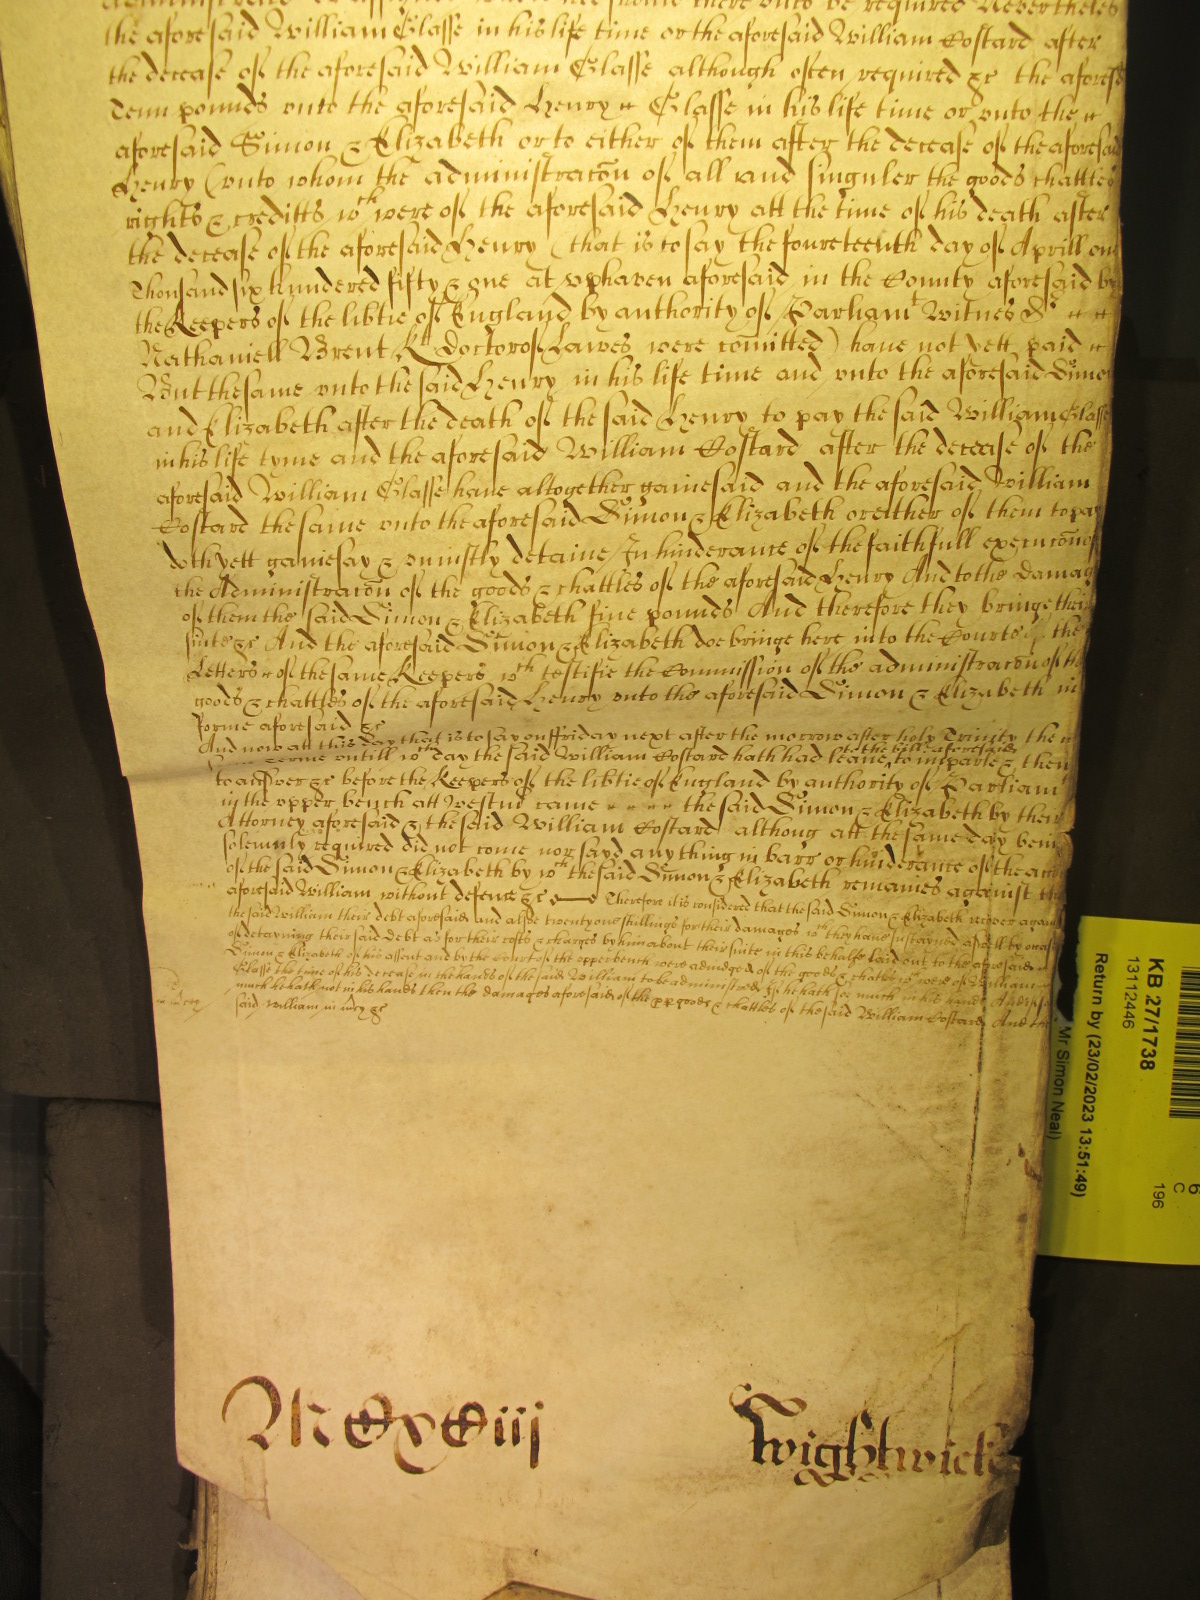 the aforesaid William Glasse in his life time or the aforesaid William Costard after
the decease of the aforesaid William Glasse although often required &c the aforesd
Tenn pounds unto the aforesaid Henry Glasse in his life time or unto the
aforesaid Simon & Elizabeth or to either of them after the decease of the aforesaid
Henry (unto whom the administracōn of all and singuler the goods chattles
rights & creditts wch were of the aforesaid Henry att the time of his death after
the decease of the aforesaid Henry (that is to say the fourteenth day of Aprill one
Thousand six hundered fifty & one at Uphaven aforesaid in the County aforesaid by
the Keepers of the libtie of England by authority of Parliamt Witnes Sr
Nathaniell Brent Kt doctor of Lawes were comitted) have not yett paid
But the same unto the said Henry in his life time and unto the aforesaid Simon
and Elizabeth after the death of the said Henry to pay the said William Glasse
in his life tyme and the aforesaid William Costard after the decease of the
aforesaid William Glasse have altogether gainesaid and the aforesaid William
Costard the same unto the aforesaid Simon & Elizabeth or either of them to pay
doth yett gainesay & uniustly detaine In hinderance of the faithfull execucōn of
the Administracōn of the goods & chattles of the aforesaid Henry And to the damage
of them the said Simon & Elizabeth five pounds And therefore they bringe their
suite &c And the aforesaid Simon & Elizabeth doe bringe here into the Courte the
Letters of the same Keepers wch testifie the Commission of the administracōn of the
goods & chattles of the aforesaid Henry unto the aforesaid Simon & Elizabeth in
forme aforesaid &c
And now att this day that is to say on ffriday next after the morrow after holy Trinity the
terme untill wch day the said William Costard hath had leave to the bill aforesaid to imparle & then
to answer &c before the Keepers of the libtie of England by authority of Parliamt
in the upper bench att Westmr came the said Simon & Elizabeth by their
Attorney aforesaid & the said William Costard although att the same day being
solemnly required did not come nor sayd any thing in barr or hinderance of the accōn
of the said Simon & Elizabeth by wch the said Simon & Elizabeth remaines against the
aforesaid William without defence &c Therefore it is considered that the said Simon & Elizabeth recover against
the said William their debt aforesaid and alsoe twenty one shillings for their damages wch they have sustayned aswell by occasion
of detayning their said debt as for their costs & charges by him about their suite in this behalfe laid out to the aforesaid
Simon & Elizabeth of his assent and by the Court of the upper bench here adiudged of the goods & chattles wch were of William
Glasse the time of his decease in the hands of the said William to be administred if he hath soe much in his hands And if soe
much he hath not in his hands then the damages aforesaid of the pp goods & chattles of the said William Costard And the
said William in mrcy &c
in mercy
MCxCiiij
Wightwick
KB 27/1738
13112446
Return by (23/02/2023 13:51:49)
Mr Simon Neal)
196
C
6